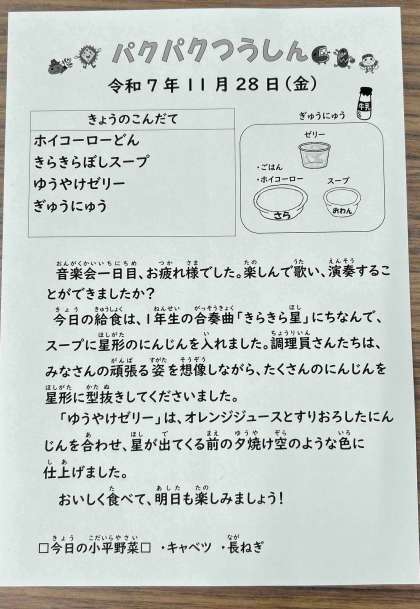 パクパクつうしん
令和7年11月28日(金)
きょうのこんだて
ホイコーローどん
きらきらぼしスープ
ゆうやけゼリー
ぎゅうにゅう
ぎゅうにゅう
牛乳
ゼリー
・ごはん
・ホイコーロー
スープ
さら
おわん
音楽会一日目、お疲れ様でした。楽しんで歌い、演奏するこ
とができましたか?
今日の給食は、1年生の合奏曲「きらきら星」にちなんで、
スープに星形のにんじんを入れました。調理員さんたちは、
みなさんの頑張る姿を想像しながら、たくさんのにんじんを
星形に型抜きしてくださいました。
「ゆうやけゼリー」は、オレンジジュースとすりおろしたにん
じんを合わせ、星が出てくる前の夕焼け空のような色に
仕上げました。
おいしく食べて、明日も楽しみましょう!
□今日の小平野菜□ ・キャベツ ・長ねぎ